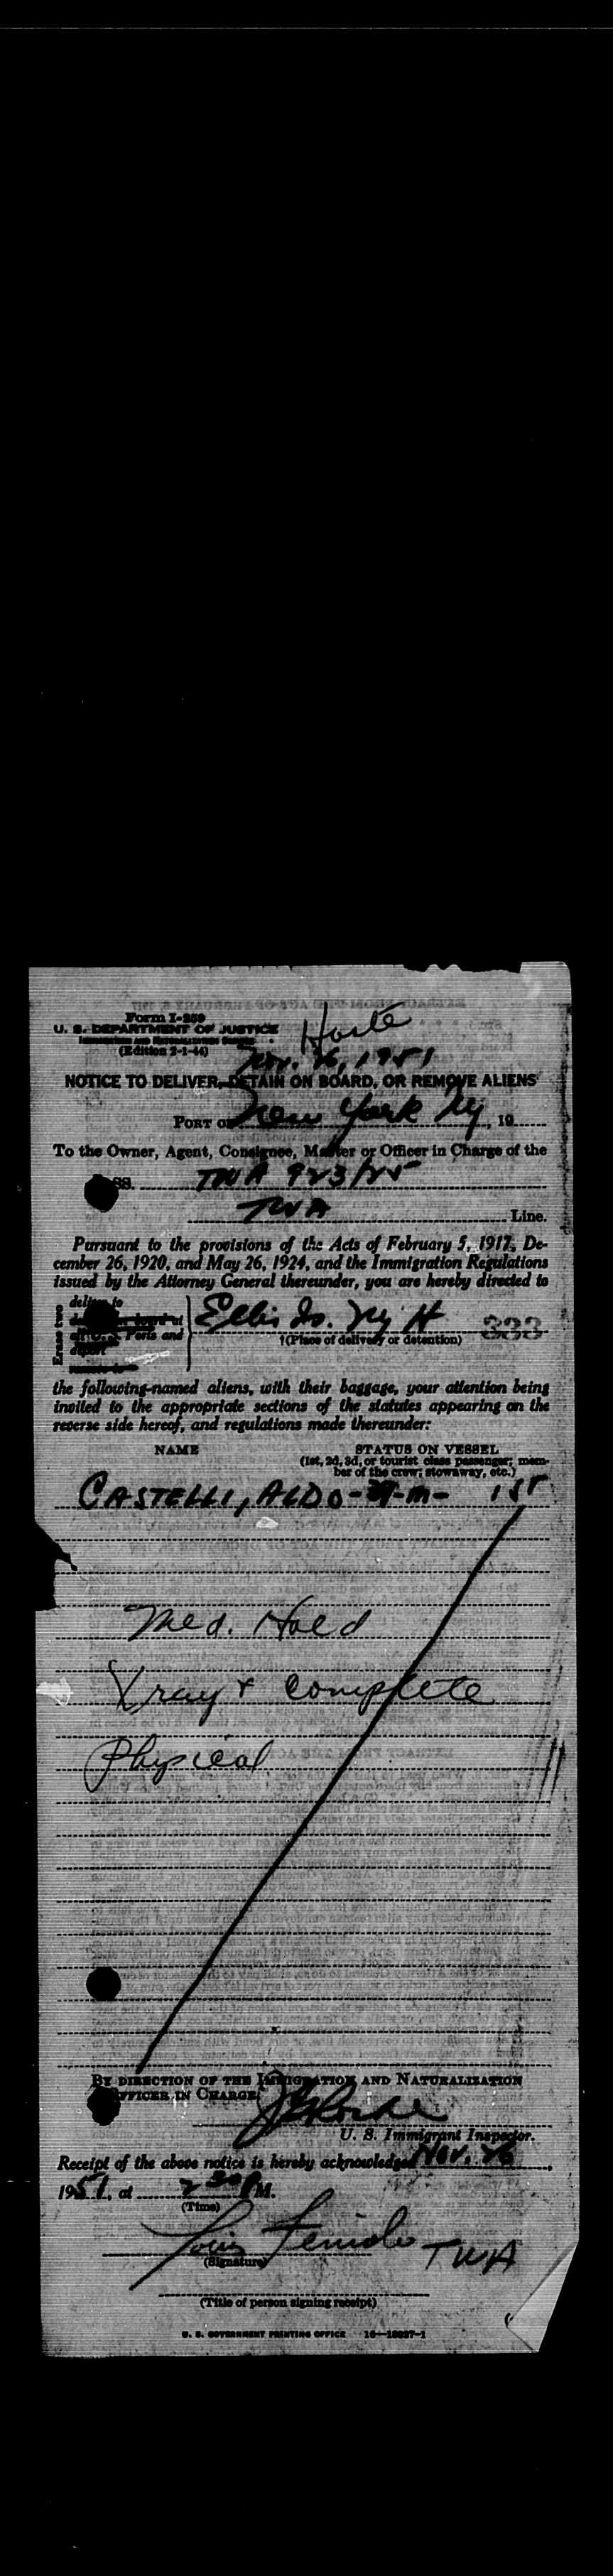 Form I-259
U. S. DEPARTMENT OF JUSTICE
IMMIGRATION AND NATURALIZATION SERVICE
(Edition 2-1-44)
Nov. 26, 1951
NOTICE TO DELIVER, DETAIN ON BOARD, OR REMOVE ALIENS
PORT OF New York Ny, 19
To the Owner, Agent, Consignee, Master or Officer in Charge of the
SS. TWA 923/25
TWA Line.
Pursuant to the provisions of the Acts of February 5, 1917, De-
cember 26, 1920, and May 26, 1924, and the Immigration Regulations
issued by the Attorney General thereunder, you are hereby directed to
Erase two
deliver to
Ellis Is. Ny H 333
Ports and
deport
†(Place of delivery or detention)
the following-named aliens, with their baggage, your attention being
invited to the appropriate sections of the statutes appearing on the
reverse side hereof, and regulations made thereunder:
NAME STATUS ON VESSEL
(1st, 2d, 3d, or tourist class passenger; mem-
ber of the crew; stowaway, etc.)
CASTELLI, ALDO-39-M- 1st
Med. Hold
Xray + Complete
Physical
BY DIRECTION OF THE IMMIGRATION AND NATURALIZATION
OFFICER IN CHARGE
U. S. Immigrant Inspector.
Receipt of the above notice is hereby acknowledged Nov. 26,
1951, at 2 30 PM.
(Time)
Louis TWA
(Signature)
(Title of person signing receipt)
U. S. GOVERNMENT PRINTING OFFICE 16—18027-1